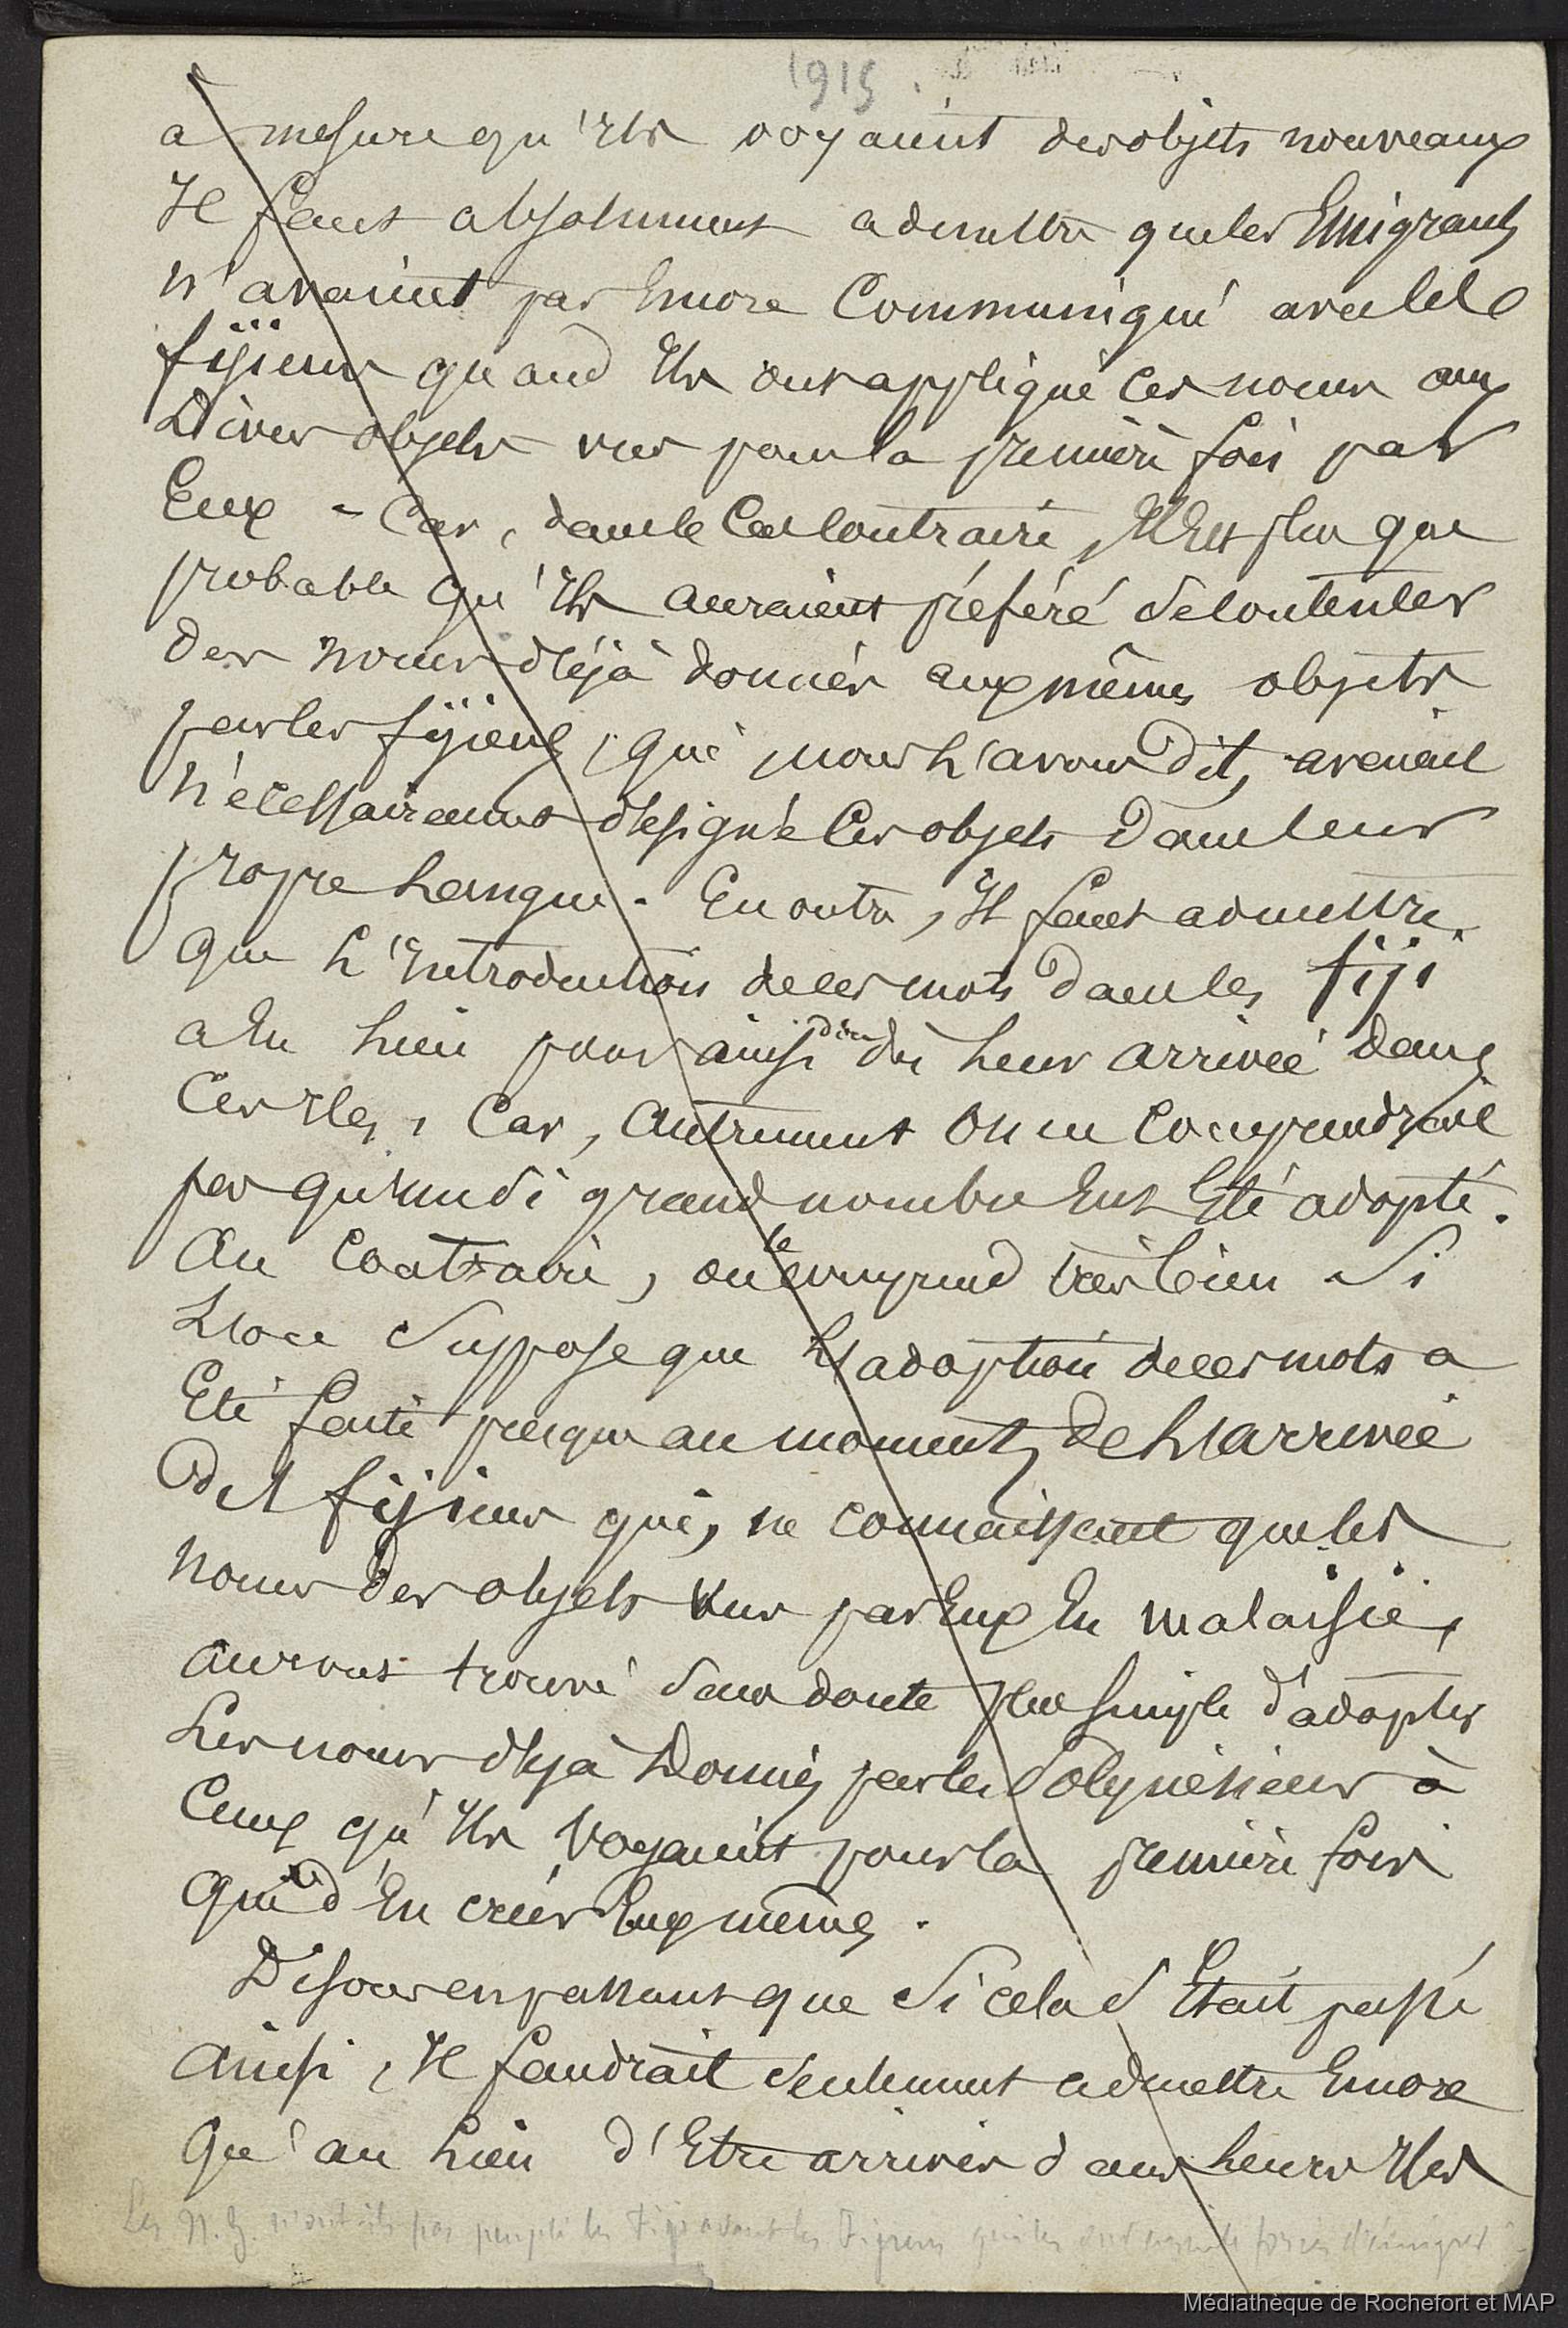 1915.
a mesure qu'ils voyaient des objets nouveaux
Il faut absolument admettre que les Emigrants
n'avaient pas Encore Communiqué avec les
fijiens quand Ils ont appliqué ces noms aux
Divers objets vus pour la première fois par
Eux - Car, dans le Cas Contraire, Il Est plus que
probable qu'Ils auraient préféré se contenter
des noms déjà donnés aux mêmes objets
par les fijiens, qui nous l'avons dit, avaient
nécessairement désigné Ces objets Dans leur
propre Langue. En outre, Il faut admettre
que L'Introduction de ces mots Dans les fiji
a Eu lieu pour ainsi dire dès leur arrivée dans
Ces Iles, Car, Autrement On ne Comprendrait
pas qu'un si grand nombre Eut Eté adopté.
Au Contraire, on le comprend très bien Si
L'on Suppose que L'adoption de ces mots a
Eté faite presque au moment de L'arrivée
des fijiens qui, ne connaissant que les
noms des objets Vus par Eux En malaisie,
auront trouvé Sans doute plus Simple d'adopter
Les noms déjà Donnés par les Polynésiens à
Ceux qu'Ils Voyaient pour la première fois
que d'En créer Eux mêmes.
Disons en passant que Si cela S'Etait passé
Ainsi, Il faudrait Seulement admettre Encore
Qu'au Lieu d'Etre arrivés dans Leurs Iles
Les N. Z. n'ont ils pas peuplé les Fiji avant les Fijiens qui les ont ensuite forcés d'émigrer
Médiathèque de Rochefort et MAP